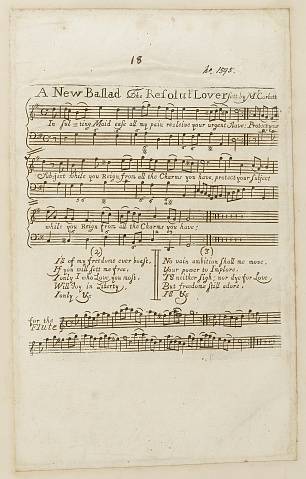 18
A New Ballad The Resolut Lover sett by Mr Corbett
In sul ting Maid ease all my pain resolve your urgent Slave. Protect your
Subject while you Reign from all the Charms you have, protect your Subject
while you Reign from all the Charms you have:
(2)
I'll of my freedome ever boast,
If you will sett me free,
I only I who Love you most,
Will Joy in Liberty.
I only &c
(3)
No vain ambition shall me move,
Your power to Implore.
I'll neither sigh; nor dye for Love,
But freedome still adore.
I'll &c
for the
Flute